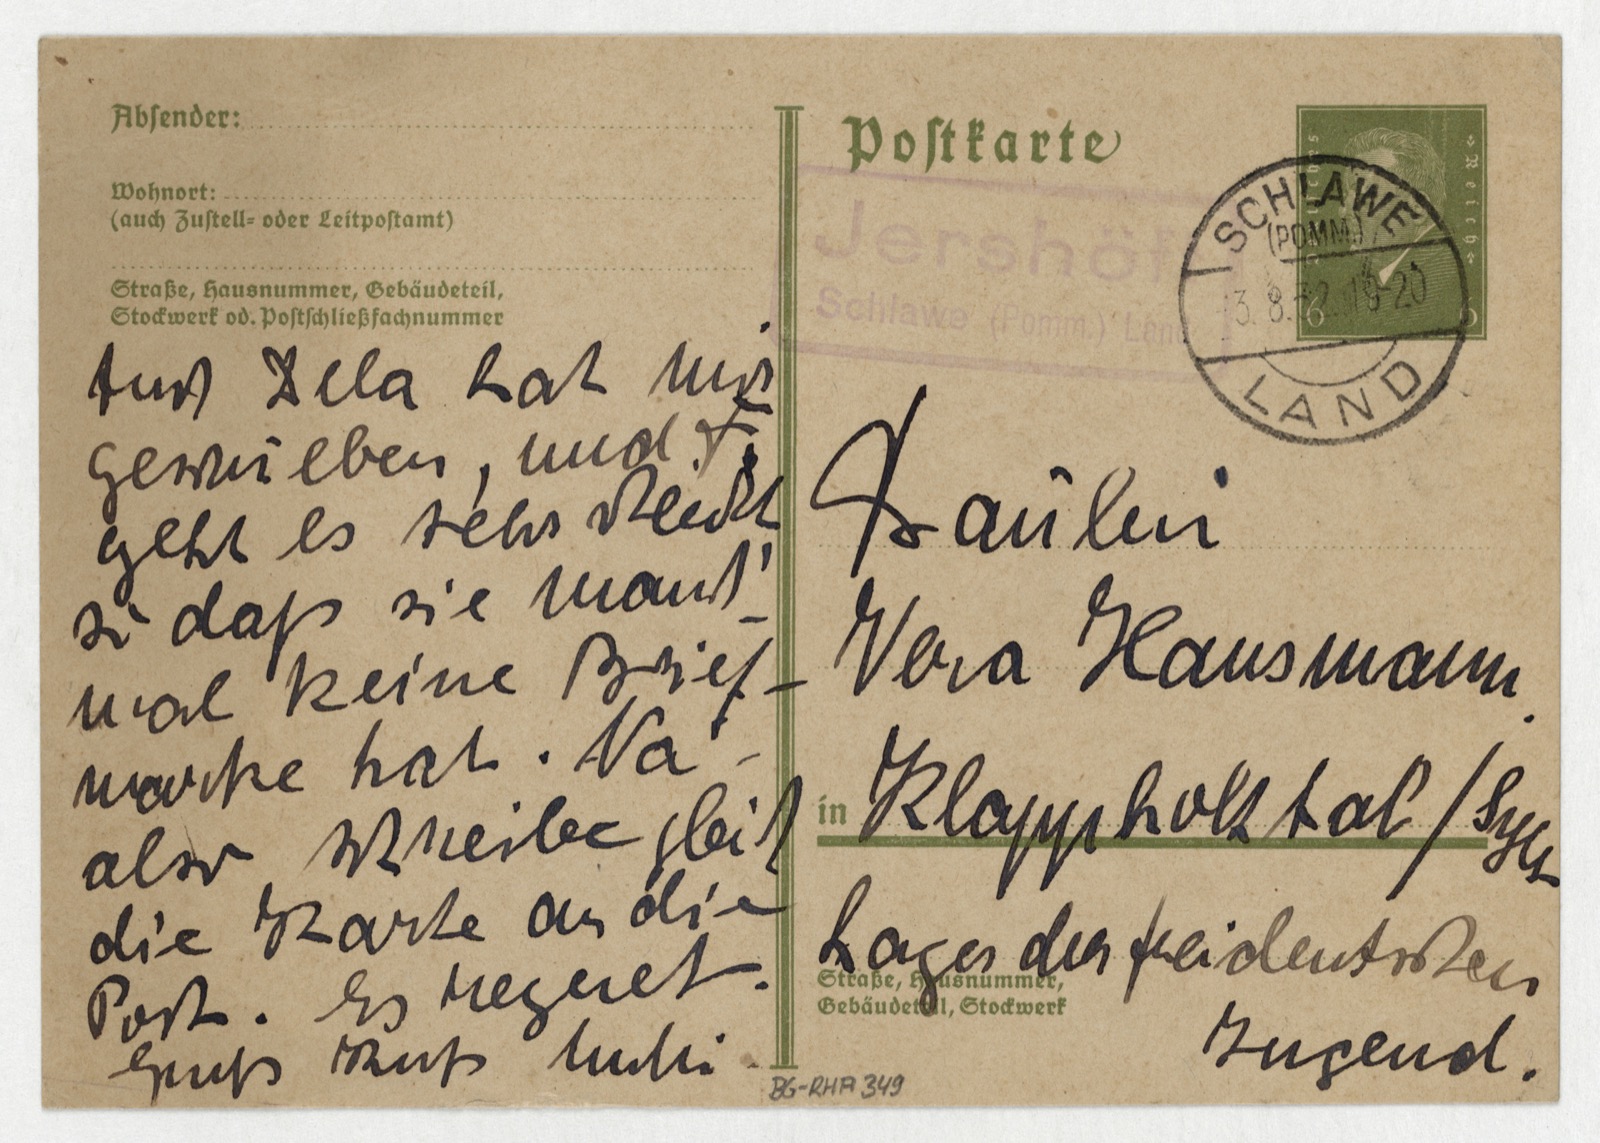 Absender:
Wohnort:
(auch Zustell- oder Leitpostamt)
Straße, Hausnummer, Gebäudeteil,
Stockwerk od. Postschließfachnummer
Auch Lela hat mir
geschrieben, und
geht es sehr schlecht
so daß sie manch'-
mal keine Brief-
marke hat. Na -
also schreibe gleich
die Karte an die
Post. Es regnet.
Gruß Kuß Muhi
Postkarte
Deutsches Reich
6 6
SCHLAWE
(POMM.)
3.8.32.19-20
LAND
Jershöft
Schlawe (Pomm.) Land
Fräulein
Vera Hausmann.
in Klappholttal / Sylt
Lager der freideutschen
Straße, Hausnummer,
Gebäudeteil, Stockwerk
Jugend.
BG-RHA 349